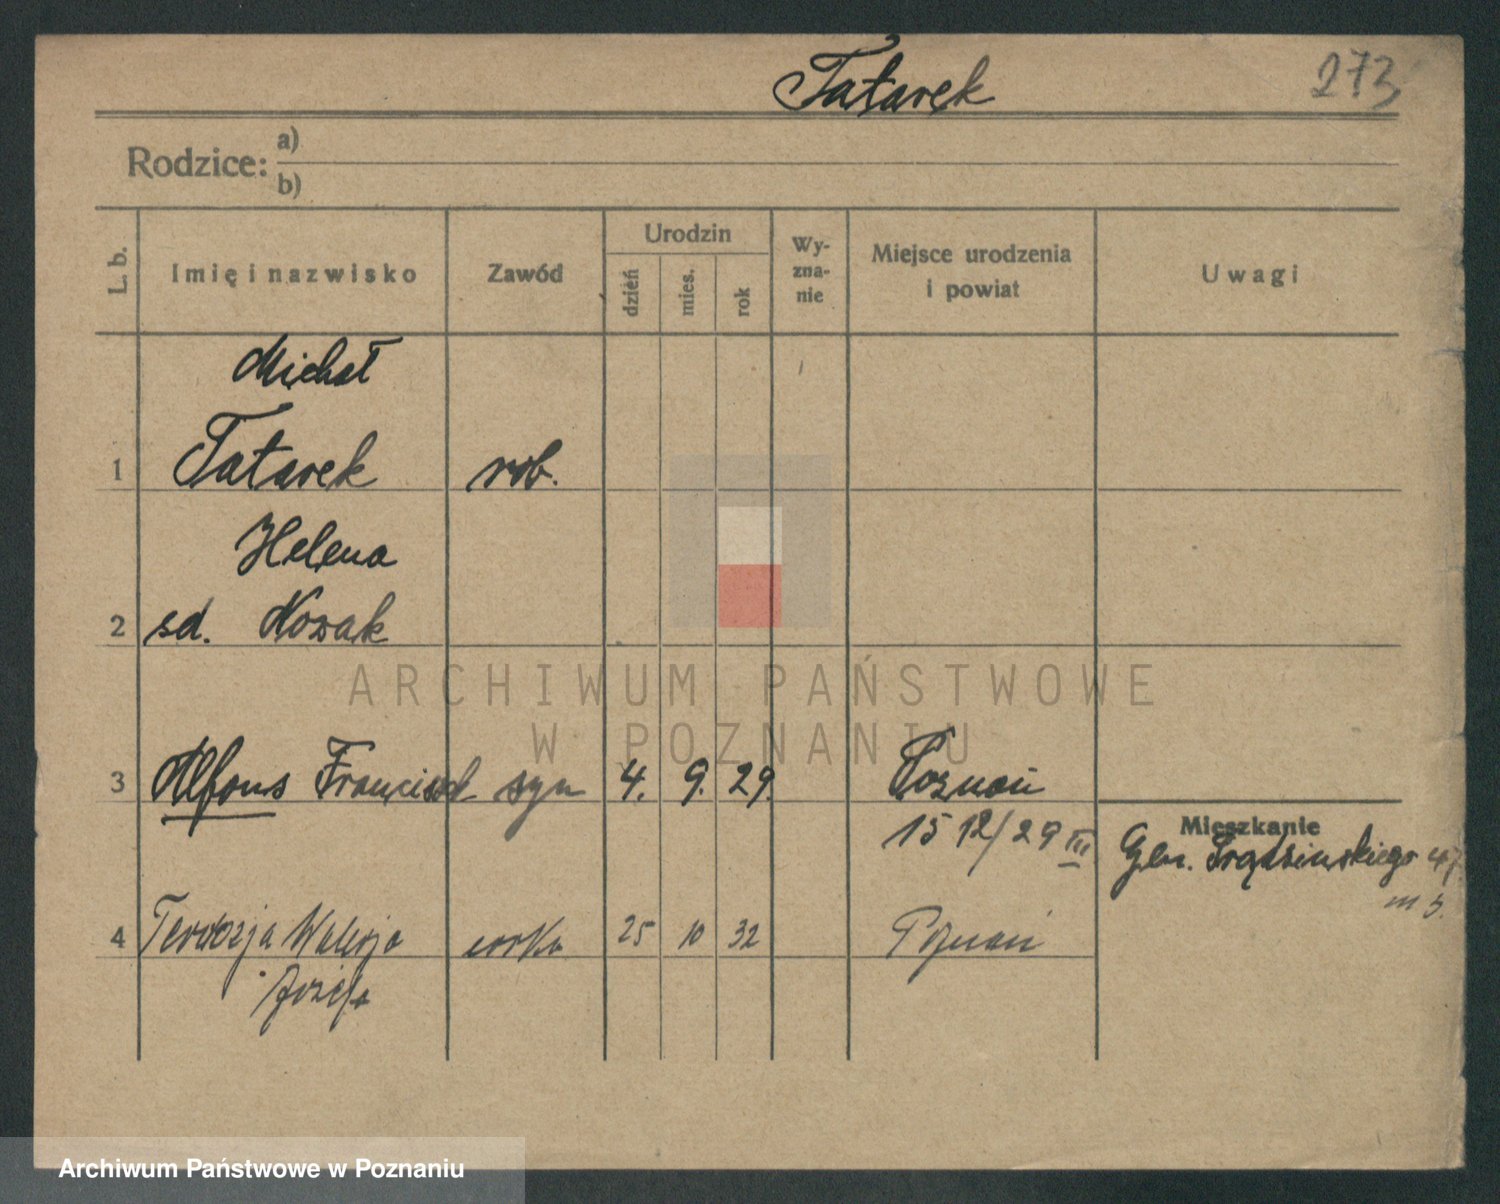 Tatarek 273
Rodzice: a)
b)
L. b. Imię i nazwisko Zawód Urodzin dzień mies. rok Wy-zna-nie Miejsce urodzenia i powiat Uwagi
Michał
1 Tatarek rob.
Helena
2 sd. Nowak
3 Alfons Franciszek syn 4. 9. 29. Poznań
15 12/29 III
Mieszkanie
Gen. Prądzińskiego 47
m 5.
4 Terezja Waleria córka 25 10 32 Poznań
Józefa
ARCHIWUM PAŃSTWOWE
W POZNANIU
Archiwum Państwowe w Poznaniu